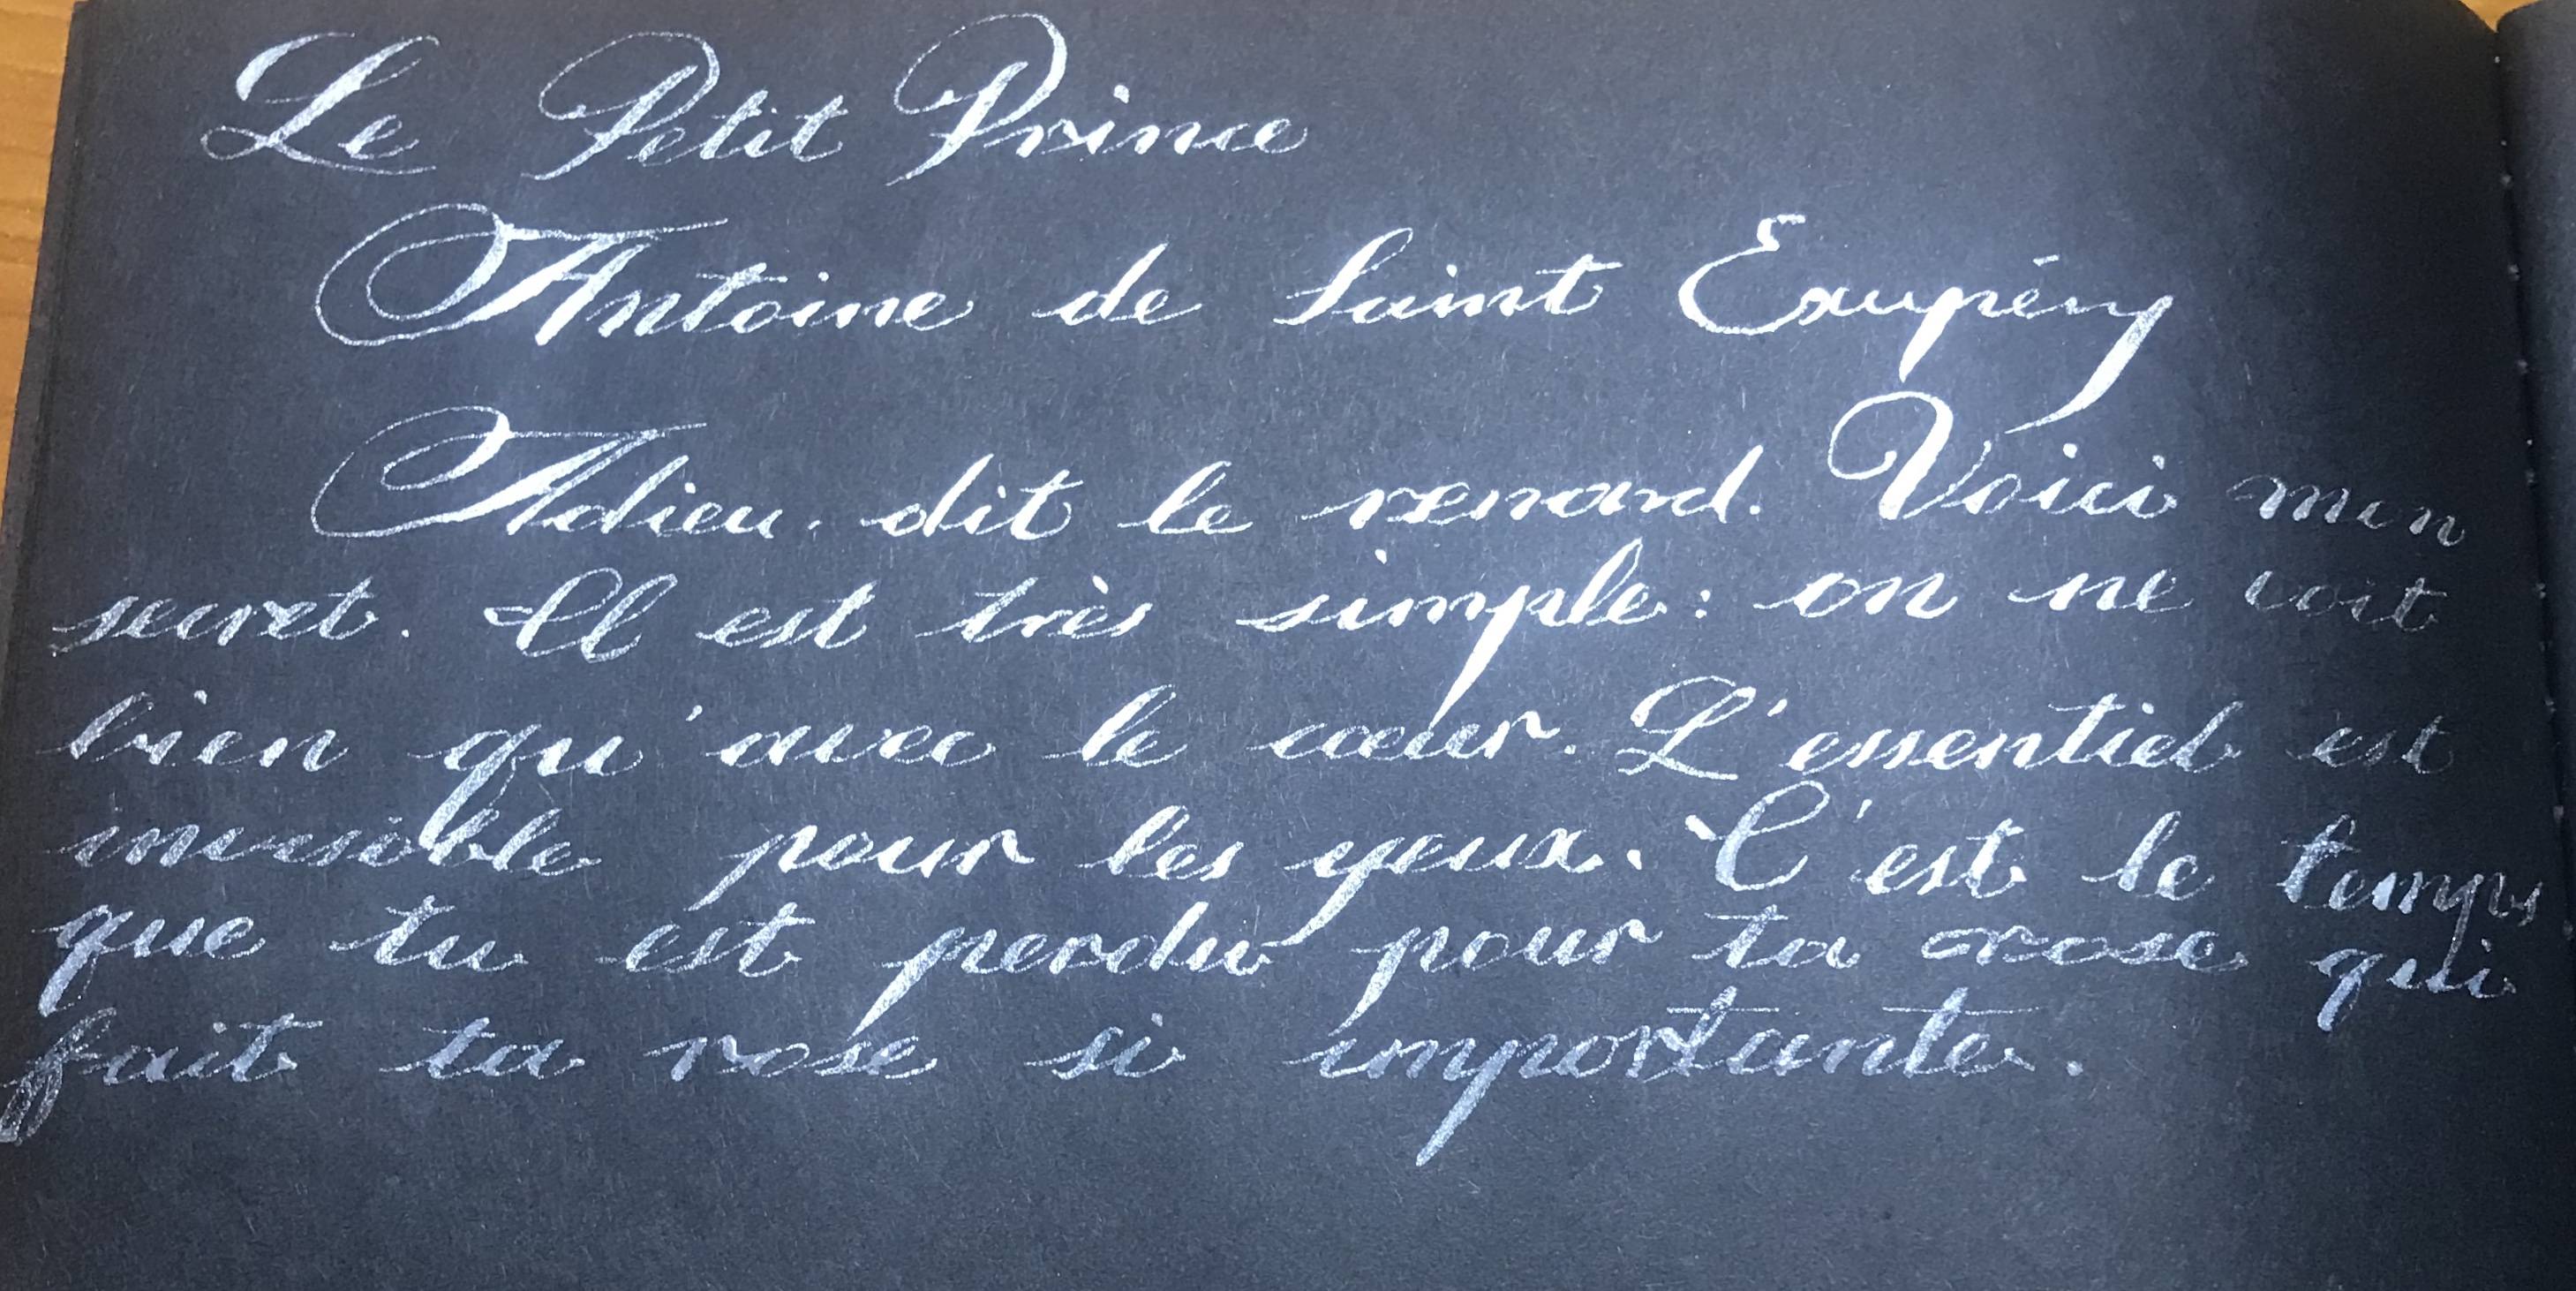 Le Petit Prince
Antoine de Saint Exupéry
Adieu, dit le renard. Voici mon
secret. Il est très simple: on ne voit
bien qu'avec le cœur. L'essentiel est
invisible pour les yeux. C'est le temps
que tu est perdu pour ta rose qui
fait ta rose si importante.